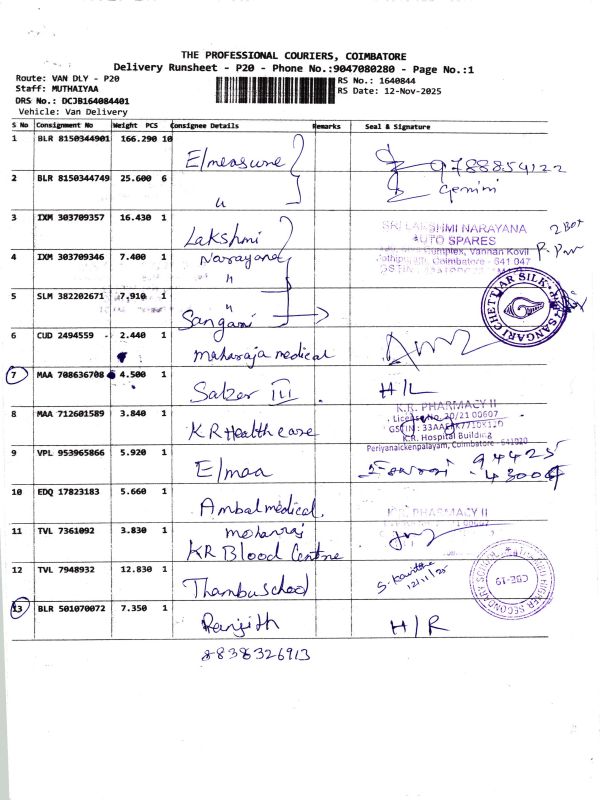 THE PROFESSIONAL COURIERS, COIMBATORE
Delivery Runsheet - P20 - Phone No.:9047080280 - Page No.:1
Route: VAN DLY - P20
Staff: MUTHAIYAA
DRS No.: DCJB164084401
Vehicle: Van Delivery
RS No.: 1640844
RS Date: 12-Nov-2025
S No Consignment No Weight PCS Consignee Details Remarks Seal & Signature
1 BLR 8150344901 166.290 10 E/measure 9788854122
2 BLR 8150344749 25.600 6 " Gemini
3 IXM 303709357 16.430 1 Lakshmi
SRI LAKSHMI NARAYANA
AUTO SPARES
Complex, Vannan Kovil
Coimbatore - 641 047
2 Box
4 IXM 303709346 7.400 1 Narayana
"
5 SLM 382202671 7.910 1 "
Sangari
SANGARI CHETTIAR SILK
6 CUD 2494559 2.440 1 maharaja medical
7 MAA 708636708 4.500 1 Salzer III. H/L
8 MAA 712601589 3.840 1 KR Health care
K.R. PHARMACY II
License No. 20/21 00607
K.R. Hospital Building
Periyanaickenpalayam, Coimbatore - 641020
9 VPL 953965866 5.920 1 E/maa 94425
43004
10 EDQ 17823183 5.660 1 Ambal medical.
K.R. PHARMACY II
11 TVL 7361092 3.830 1 moharaj
KR Blood Centre
12 TVL 7948932 12.830 1 Thambu School
S. Kavitha
12/11/25
HIGHER SECONDARY SCHOOL
CBE-19
13 BLR 501070072 7.350 1 Ranjith H/R
8838326913